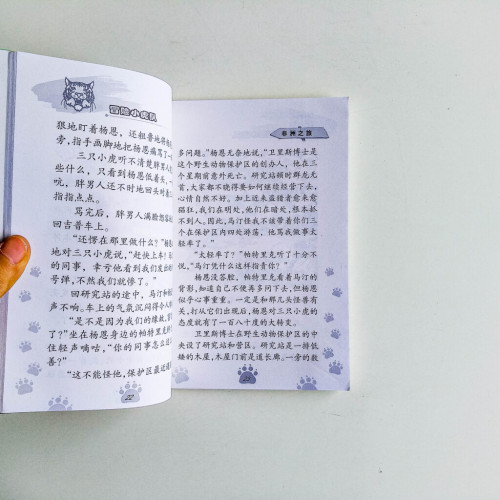 冒险小虎队
狠地盯着杨恩，还粗鲁地将他
旁，指手画脚地把杨恩痛骂了一
三只小虎听不清楚胖男人
些什么，只看到杨恩低着头、一
吭，胖男人还不时地回头对着
指指点点。
骂完后，胖男人满脸怒
回吉普车上。
“还愣在那里做什么？”杨
地对三只小虎说，“赶快上车！
的同事，幸亏他看到我们发出的
号弹，不然我们就惨了。”
回研究站的途中，马汀和
声不响。车上的气氛沉闷得令人
“是不是因为我们的缘故，
了？”坐在杨恩身边的帕特里克
住轻声嘀咕，“你的同事怎么这
善？”
“这不能怪他，保护区最近
22
非洲之旅
多问题。”杨恩无奈地说，“卫里斯博士是
这个野生动物保护区的创办人，他在三
个星期前意外死亡。研究站顿时群龙无
首，大家都不晓得要如何继续经营下去，
心情自然不好。加上近来盗猎者愈来愈
猖狂，我们在明处，他们在暗处，根本抓
不到人。因此，马汀怪我不该带着你们三
个在保护区内四处游荡，他骂我做事太
轻率了。”
“太轻率了？”帕特里克听了十分不
悦，“马汀凭什么这样指责你？”
杨恩没答腔，帕特里克看着马汀的
背影，知道自己不便再多问下去，但杨恩
似乎心事重重。一定是和那几头怪兽有
关，打从它们出现后，杨恩对三只小虎的
态度就有了一百八十度的大转变。
卫里斯博士在野生动物保护区的中
央设了研究站和营区。研究站是一排低
矮的木屋，木屋门前是道长廊。一旁的数
23